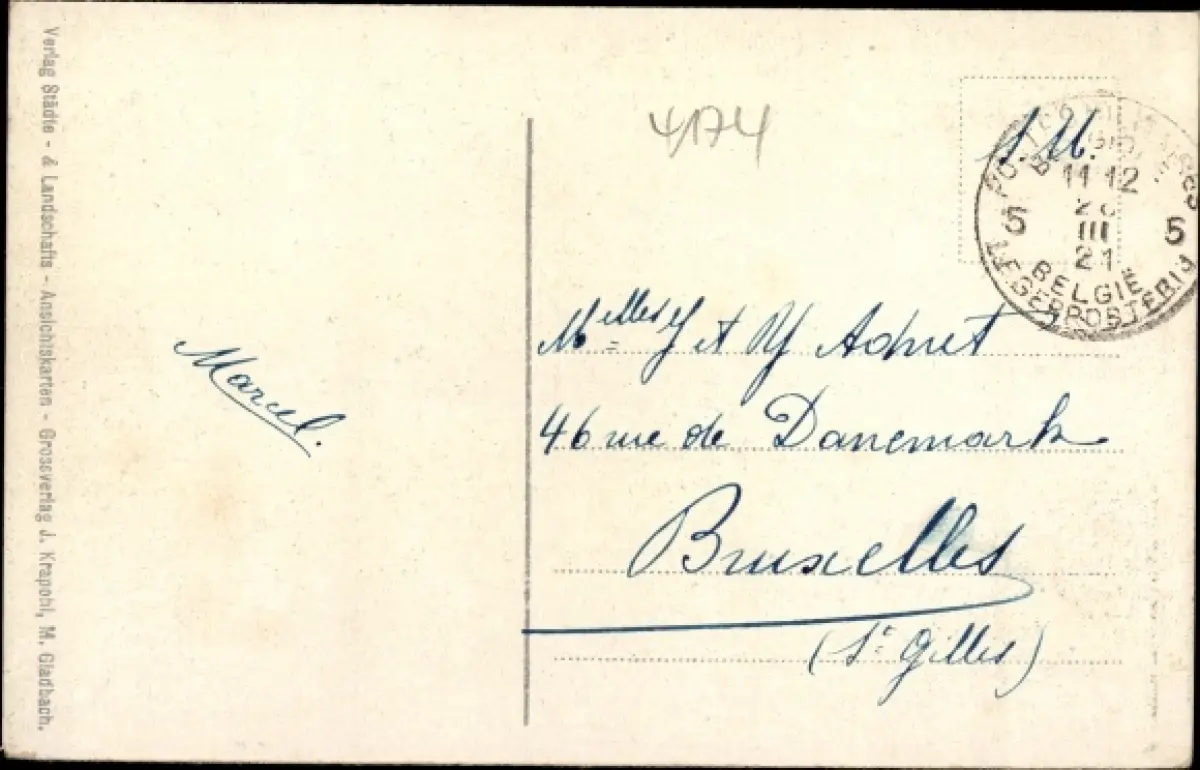 Verlag Städte- & Landschafts-Ansichtskarten - Grossverlag J. Krapohl, M. Gladbach.
4174
S.M.
POSTES MILITAIRES
BELGIQUE
11-12
III
21
5 5
BELGIË
LEGERPOSTERIJ
Melles Y et Adnet
46 rue de Danemark
Bruxelles
(St Gilles)
Marcel.